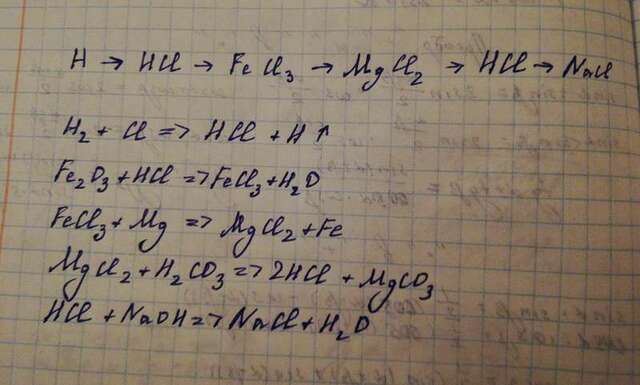 H → HCl → FeCl₃ → MgCl₂ → HCl → NaCl
H₂ + Cl => HCl + H↑
Fe₂O₃ + HCl => FeCl₃ + H₂O
FeCl₃ + Mg => MgCl₂ + Fe
MgCl₂ + H₂CO₃ => 2HCl + MgCO₃
HCl + NaOH => NaCl + H₂O